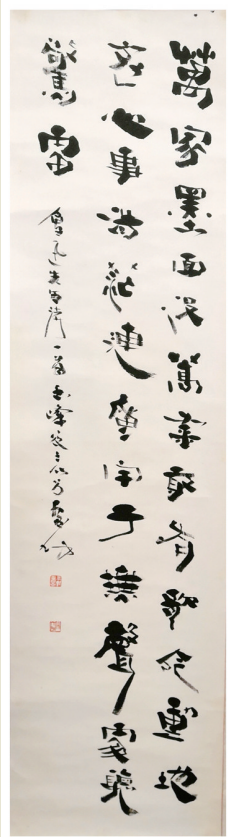 萬家墨面没蒿萊敢有歌吟動地
哀心事浩茫連廣宇于無聲處聽
驚雷 魯迅先生詩一首